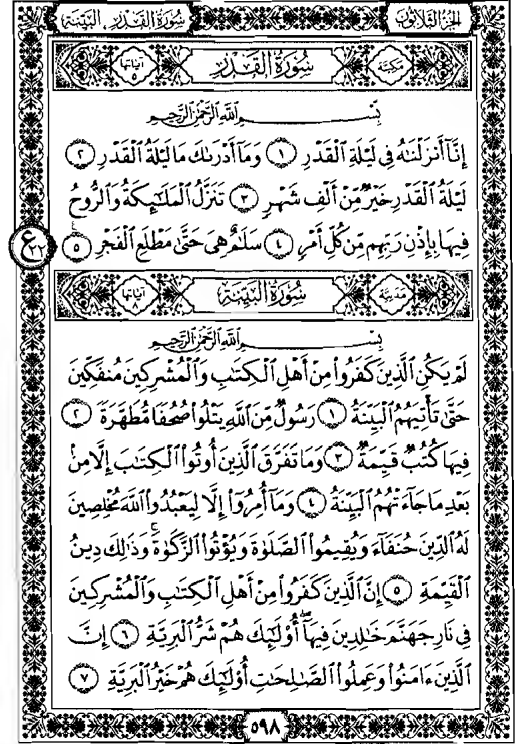 الجزء الثلاثون
سورة القدر ، البينة
مكية
سُورَةُ القَدْرِ
آياتها ٥
بِسْمِ اللَّهِ الرَّحْمَٰنِ الرَّحِيمِ
إِنَّآ أَنزَلْنَٰهُ فِى لَيْلَةِ ٱلْقَدْرِ ١ وَمَآ أَدْرَىٰكَ مَا لَيْلَةُ ٱلْقَدْرِ ٢
لَيْلَةُ ٱلْقَدْرِ خَيْرٌ مِّنْ أَلْفِ شَهْرٍ ٣ تَنَزَّلُ ٱلْمَلَٰٓئِكَةُ وَٱلرُّوحُ
فِيهَا بِإِذْنِ رَبِّهِم مِّن كُلِّ أَمْرٍ ٤ سَلَٰمٌ هِىَ حَتَّىٰ مَطْلَعِ ٱلْفَجْرِ ٥
ع ٢٢
مدنية
سُورَةُ البَيِّنَةِ
آياتها ٨
بِسْمِ اللَّهِ الرَّحْمَٰنِ الرَّحِيمِ
لَمْ يَكُنِ ٱلَّذِينَ كَفَرُوا۟ مِنْ أَهْلِ ٱلْكِتَٰبِ وَٱلْمُشْرِكِينَ مُنفَكِّينَ
حَتَّىٰ تَأْتِيَهُمُ ٱلْبَيِّنَةُ ١ رَسُولٌ مِّنَ ٱللَّهِ يَتْلُوا۟ صُحُفًا مُّطَهَّرَةً ٢
فِيهَا كُتُبٌ قَيِّمَةٌ ٣ وَمَا تَفَرَّقَ ٱلَّذِينَ أُوتُوا۟ ٱلْكِتَٰبَ إِلَّا مِنۢ
بَعْدِ مَا جَآءَتْهُمُ ٱلْبَيِّنَةُ ٤ وَمَآ أُمِرُوٓا۟ إِلَّا لِيَعْبُدُوا۟ ٱللَّهَ مُخْلِصِينَ
لَهُ ٱلدِّينَ حُنَفَآءَ وَيُقِيمُوا۟ ٱلصَّلَوٰةَ وَيُؤْتُوا۟ ٱلزَّكَوٰةَ ۚ وَذَٰلِكَ دِينُ
ٱلْقَيِّمَةِ ٥ إِنَّ ٱلَّذِينَ كَفَرُوا۟ مِنْ أَهْلِ ٱلْكِتَٰبِ وَٱلْمُشْرِكِينَ
فِى نَارِ جَهَنَّمَ خَٰلِدِينَ فِيهَآ ۚ أُو۟لَٰٓئِكَ هُمْ شَرُّ ٱلْبَرِيَّةِ ٦ إِنَّ
ٱلَّذِينَ ءَامَنُوا۟ وَعَمِلُوا۟ ٱلصَّٰلِحَٰتِ أُو۟لَٰٓئِكَ هُمْ خَيْرُ ٱلْبَرِيَّةِ ٧
٥٩٨